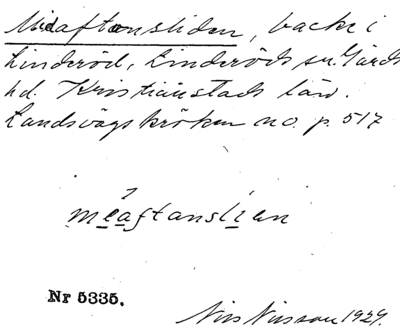 Midaftonsliden, backe i
Linderöd, Linderöds sn. Gärds
hd. Kristianstads län.
Landsvägskröken no. p. 517
meaftanslien
Nr 5335.
Nils Nilsson 1929.